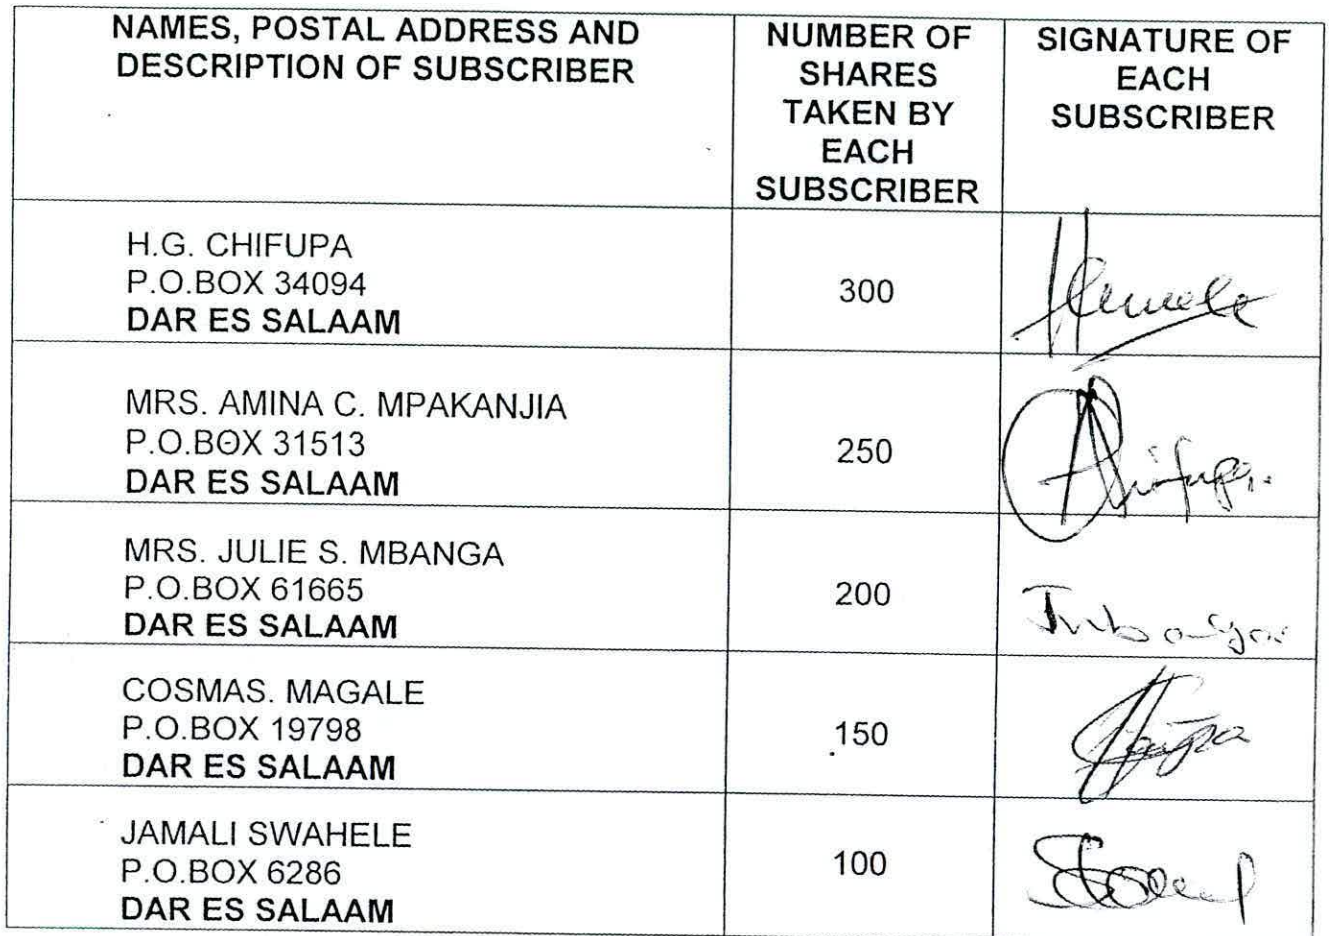 NAMES, POSTAL ADDRESS AND
DESCRIPTION OF SUBSCRIBER
NUMBER OF
SHARES
TAKEN BY
EACH
SUBSCRIBER
SIGNATURE OF
EACH
SUBSCRIBER
H.G. CHIFUPA
P.O.BOX 34094
DAR ES SALAAM
300
MRS. AMINA C. MPAKANJIA
P.O.BOX 31513
DAR ES SALAAM
250
MRS. JULIE S. MBANGA
P.O.BOX 61665
DAR ES SALAAM
200
COSMAS. MAGALE
P.O.BOX 19798
DAR ES SALAAM
150
JAMALI SWAHELE
P.O.BOX 6286
DAR ES SALAAM
100